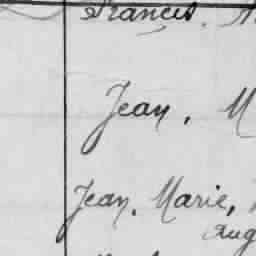 Francis.
Jean, M
Jean, Marie,
Aug